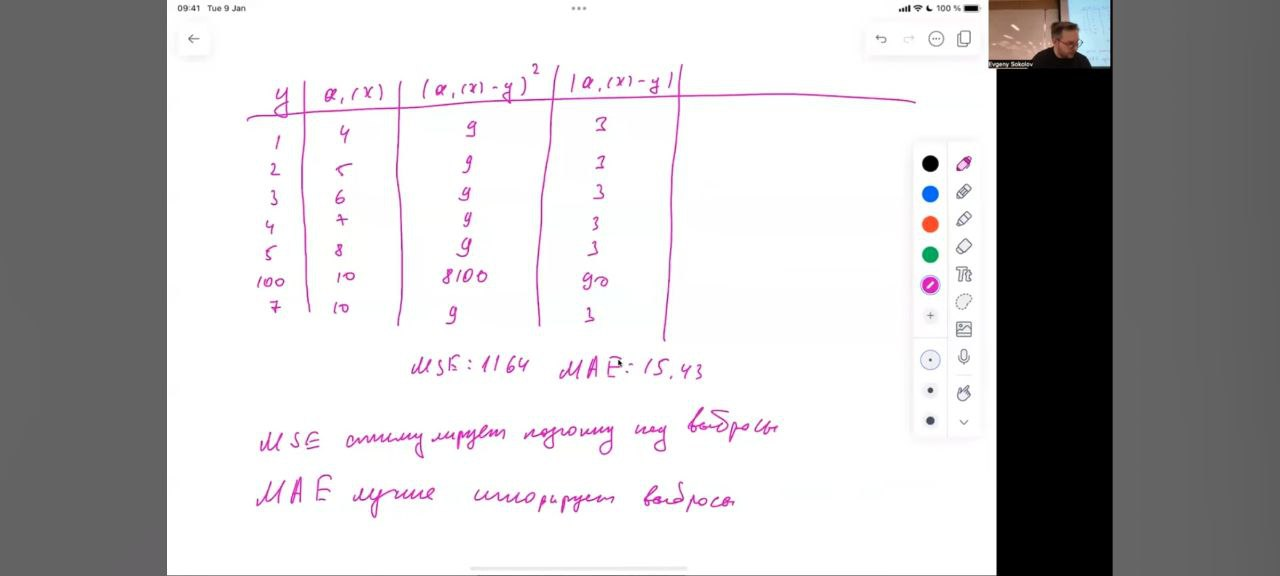 09:41 Tue 9 Jan
100 %
Evgeny Sokolov
y a₁(x) (a₁(x)-y)² |a₁(x)-y|
1 4 9 3
2 5 9 3
3 6 9 3
4 7 9 3
5 8 9 3
100 10 8100 90
7 10 9 3
MSE: 1164 MAE: 15.43
MSE стимулирует подгонку под выбросы
MAE лучше игнорирует выбросы
Tt